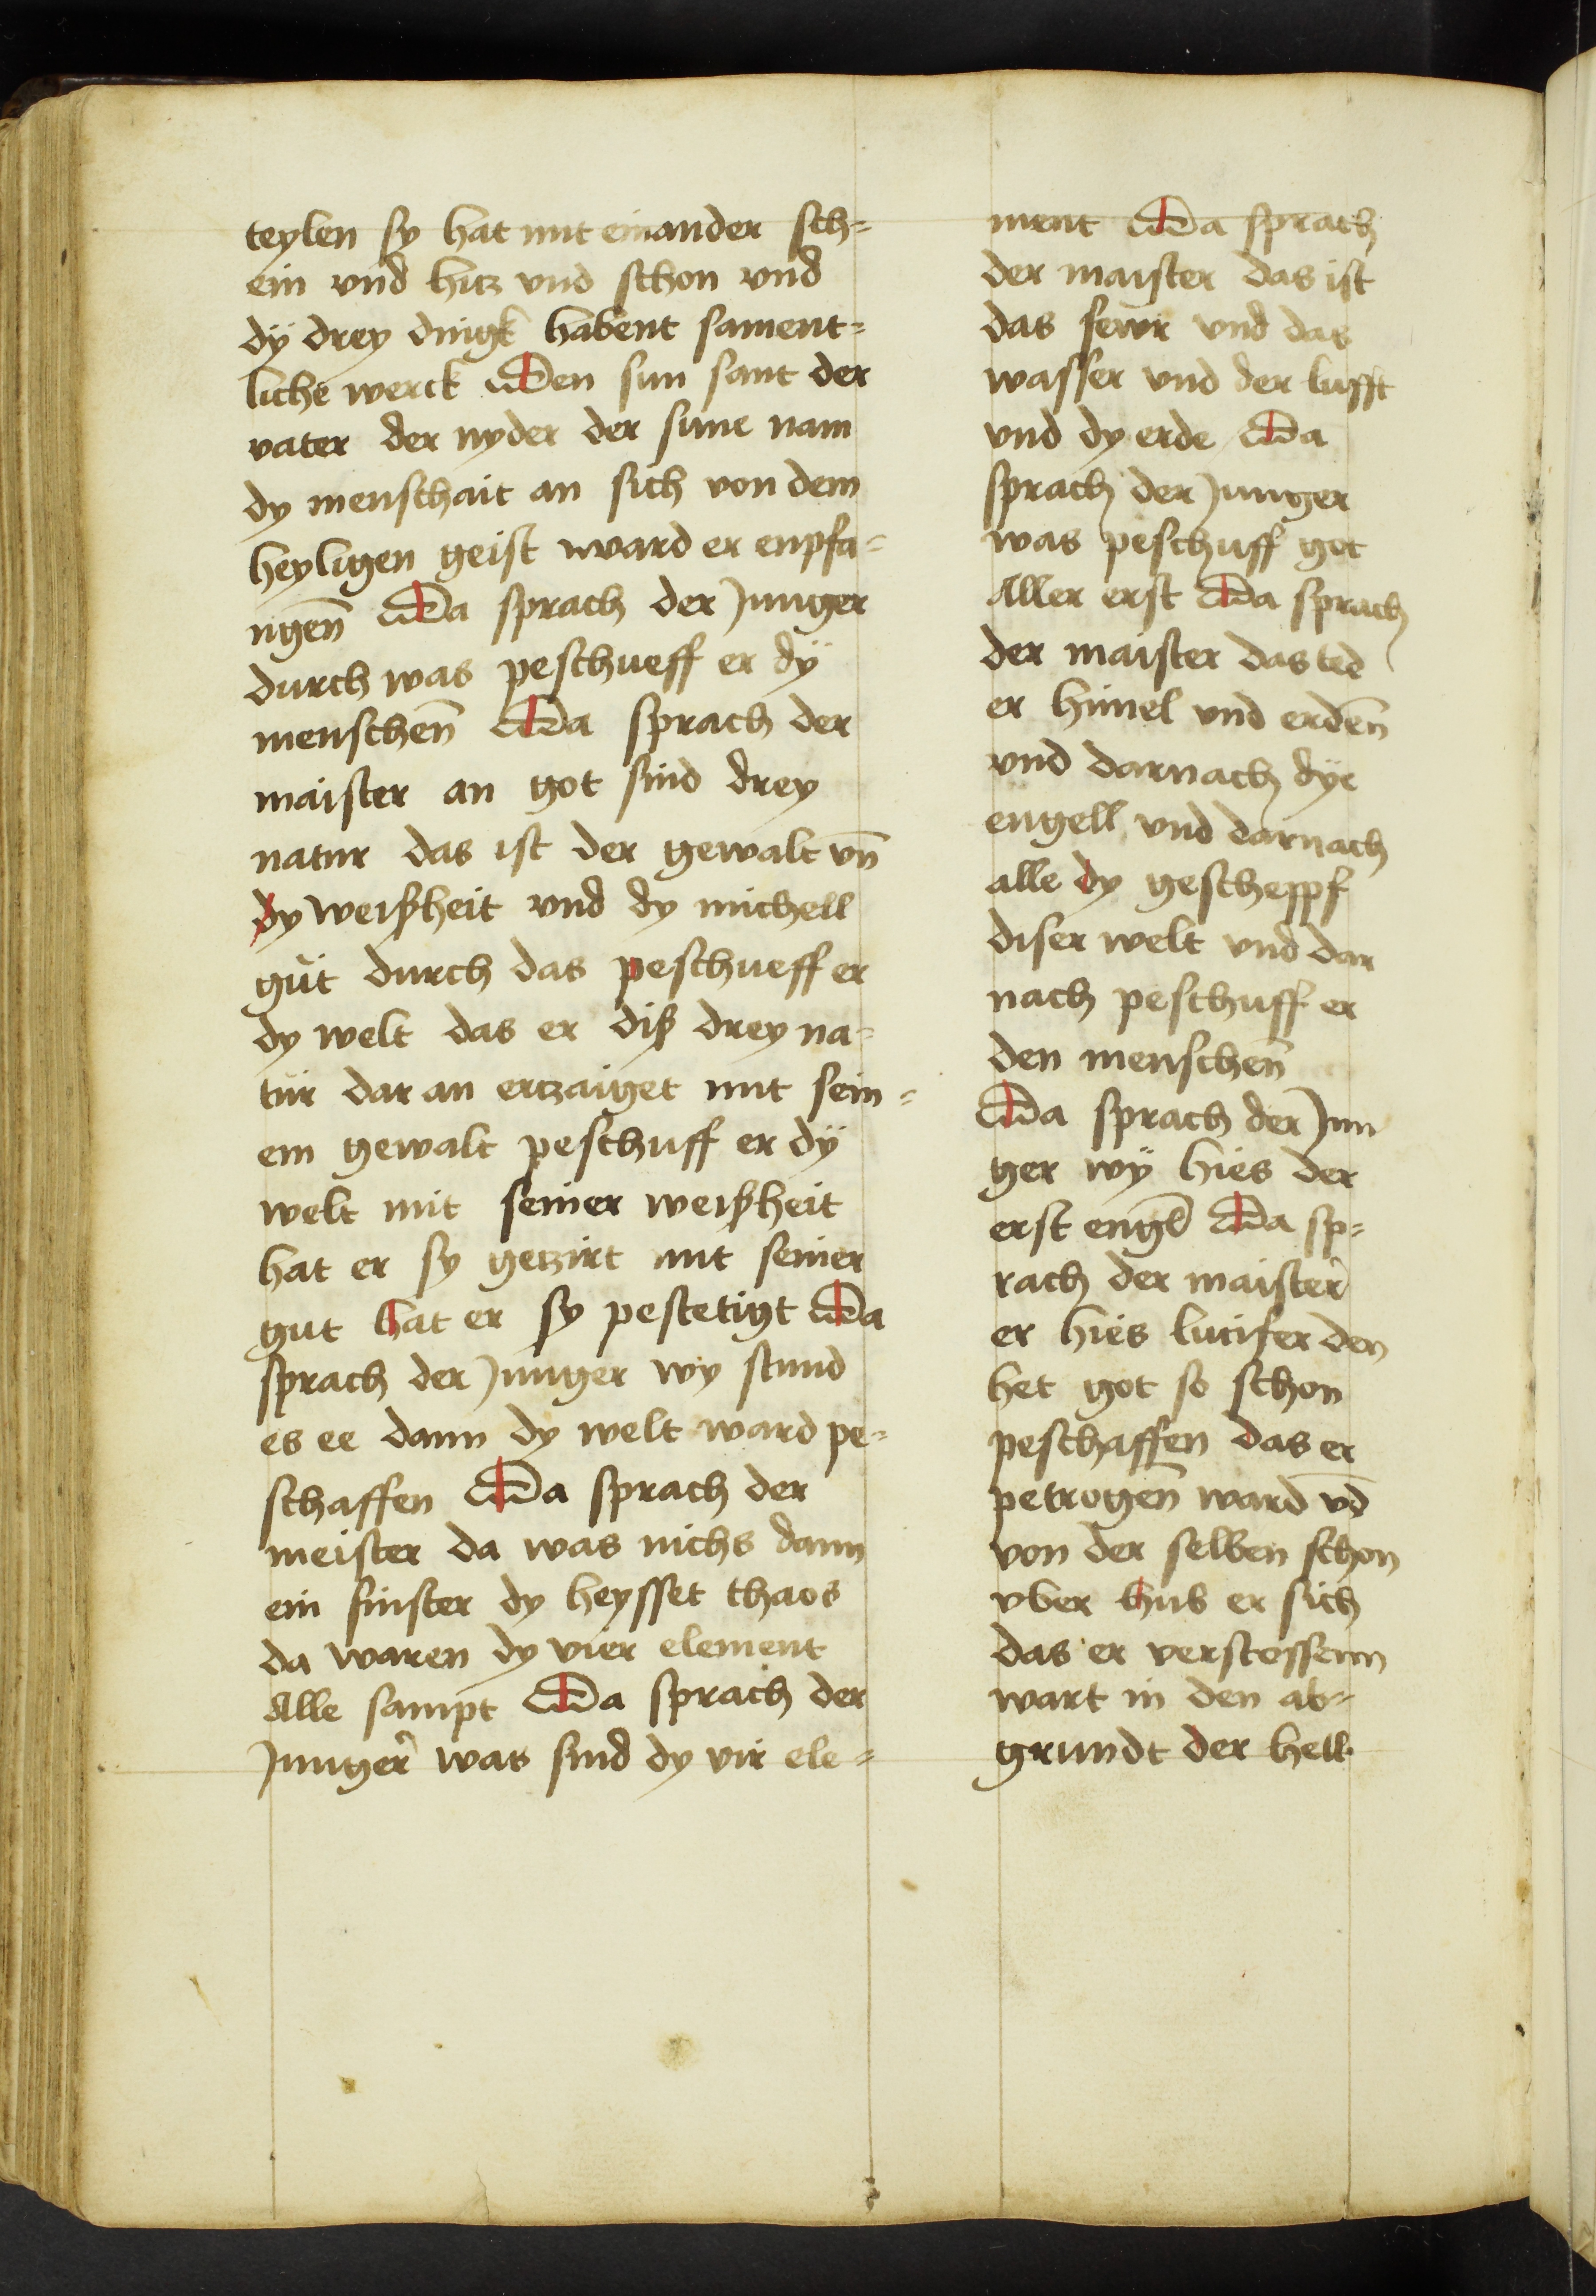 teylen sy hat mit einander sch=
ein vnd hitz vnd schon vnd
dÿ drey dingk habent sament=
liche werck Den sun sant der
vater der nyder der sune nam
dy menschait an sich von dem
heyligen geist ward er enpfa=
ngen̄ Da sprach der Junger
durch was peschueff er dÿ
menschen̄ Da sprach der
maister an got sind drey
natur das ist der gewalt vn̄
dy weißheit vnd dy michell
gut durch das peschueff er
dy welt das er diß drey na=
tur dar an ertzaiget mit sein=
em gewalt peschuff er dÿ
welt mit seiner weißheit
hat er sy getzirt mit seiner
gut hat er sy pestetigt Da
sprach der Junger wy stund
es ee dann dy welt ward pe=
schaffen Da sprach der
meister da was nichs dann
ein finster dy heysset chaos
da waren dy vier element
Alle sampt Da sprach der
Junger was sind dy vir ele=
ment Da sprach
der maister das ist
das fewr vnd das
wasser vnd der lufft
vnd dy erde Da
sprach der Junger
was peschuff got
Aller erst Da sprach
der maister das ted
er himel vnd erden̄
vnd darnach dÿe
engell vnd darnach
alle dy gescheppf
diser welt vnd dar
nach peschuff er
den menschen̄
Da sprach der Jun
ger wÿ hies der
erst engel Da sp=
rach der maister
er hies lucifer den
het got so schon
peschaffen das er
petrogen̄ ward vd̄
von der selben schon
vber hub er sich
das er verstossenn
wart in den ab=
grundt der hell